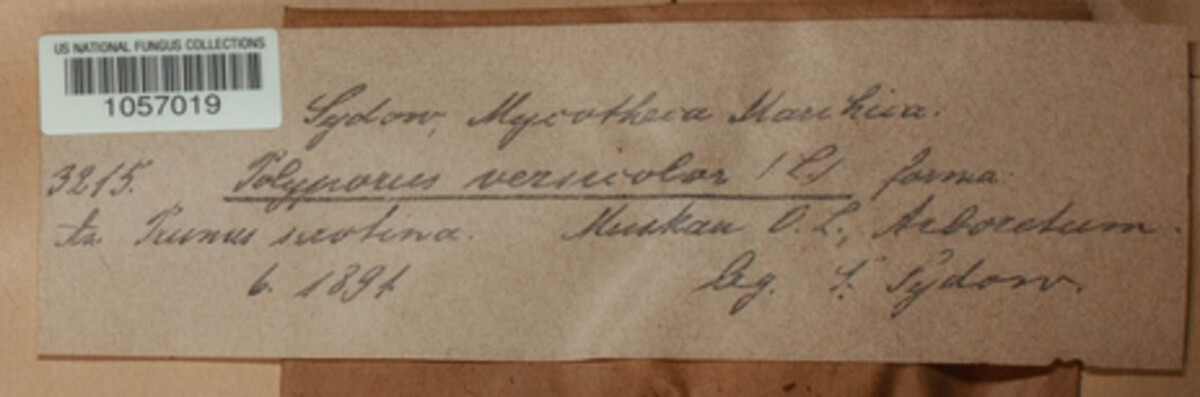 US NATIONAL FUNGUS COLLECTIONS
1057019
Sydow, Mycotheca Marchica.
3215. Polyporus versicolor (L) forma
Prunus serotina. Muskau O. L., Arboretum.
6. 1891 leg. Sydow.